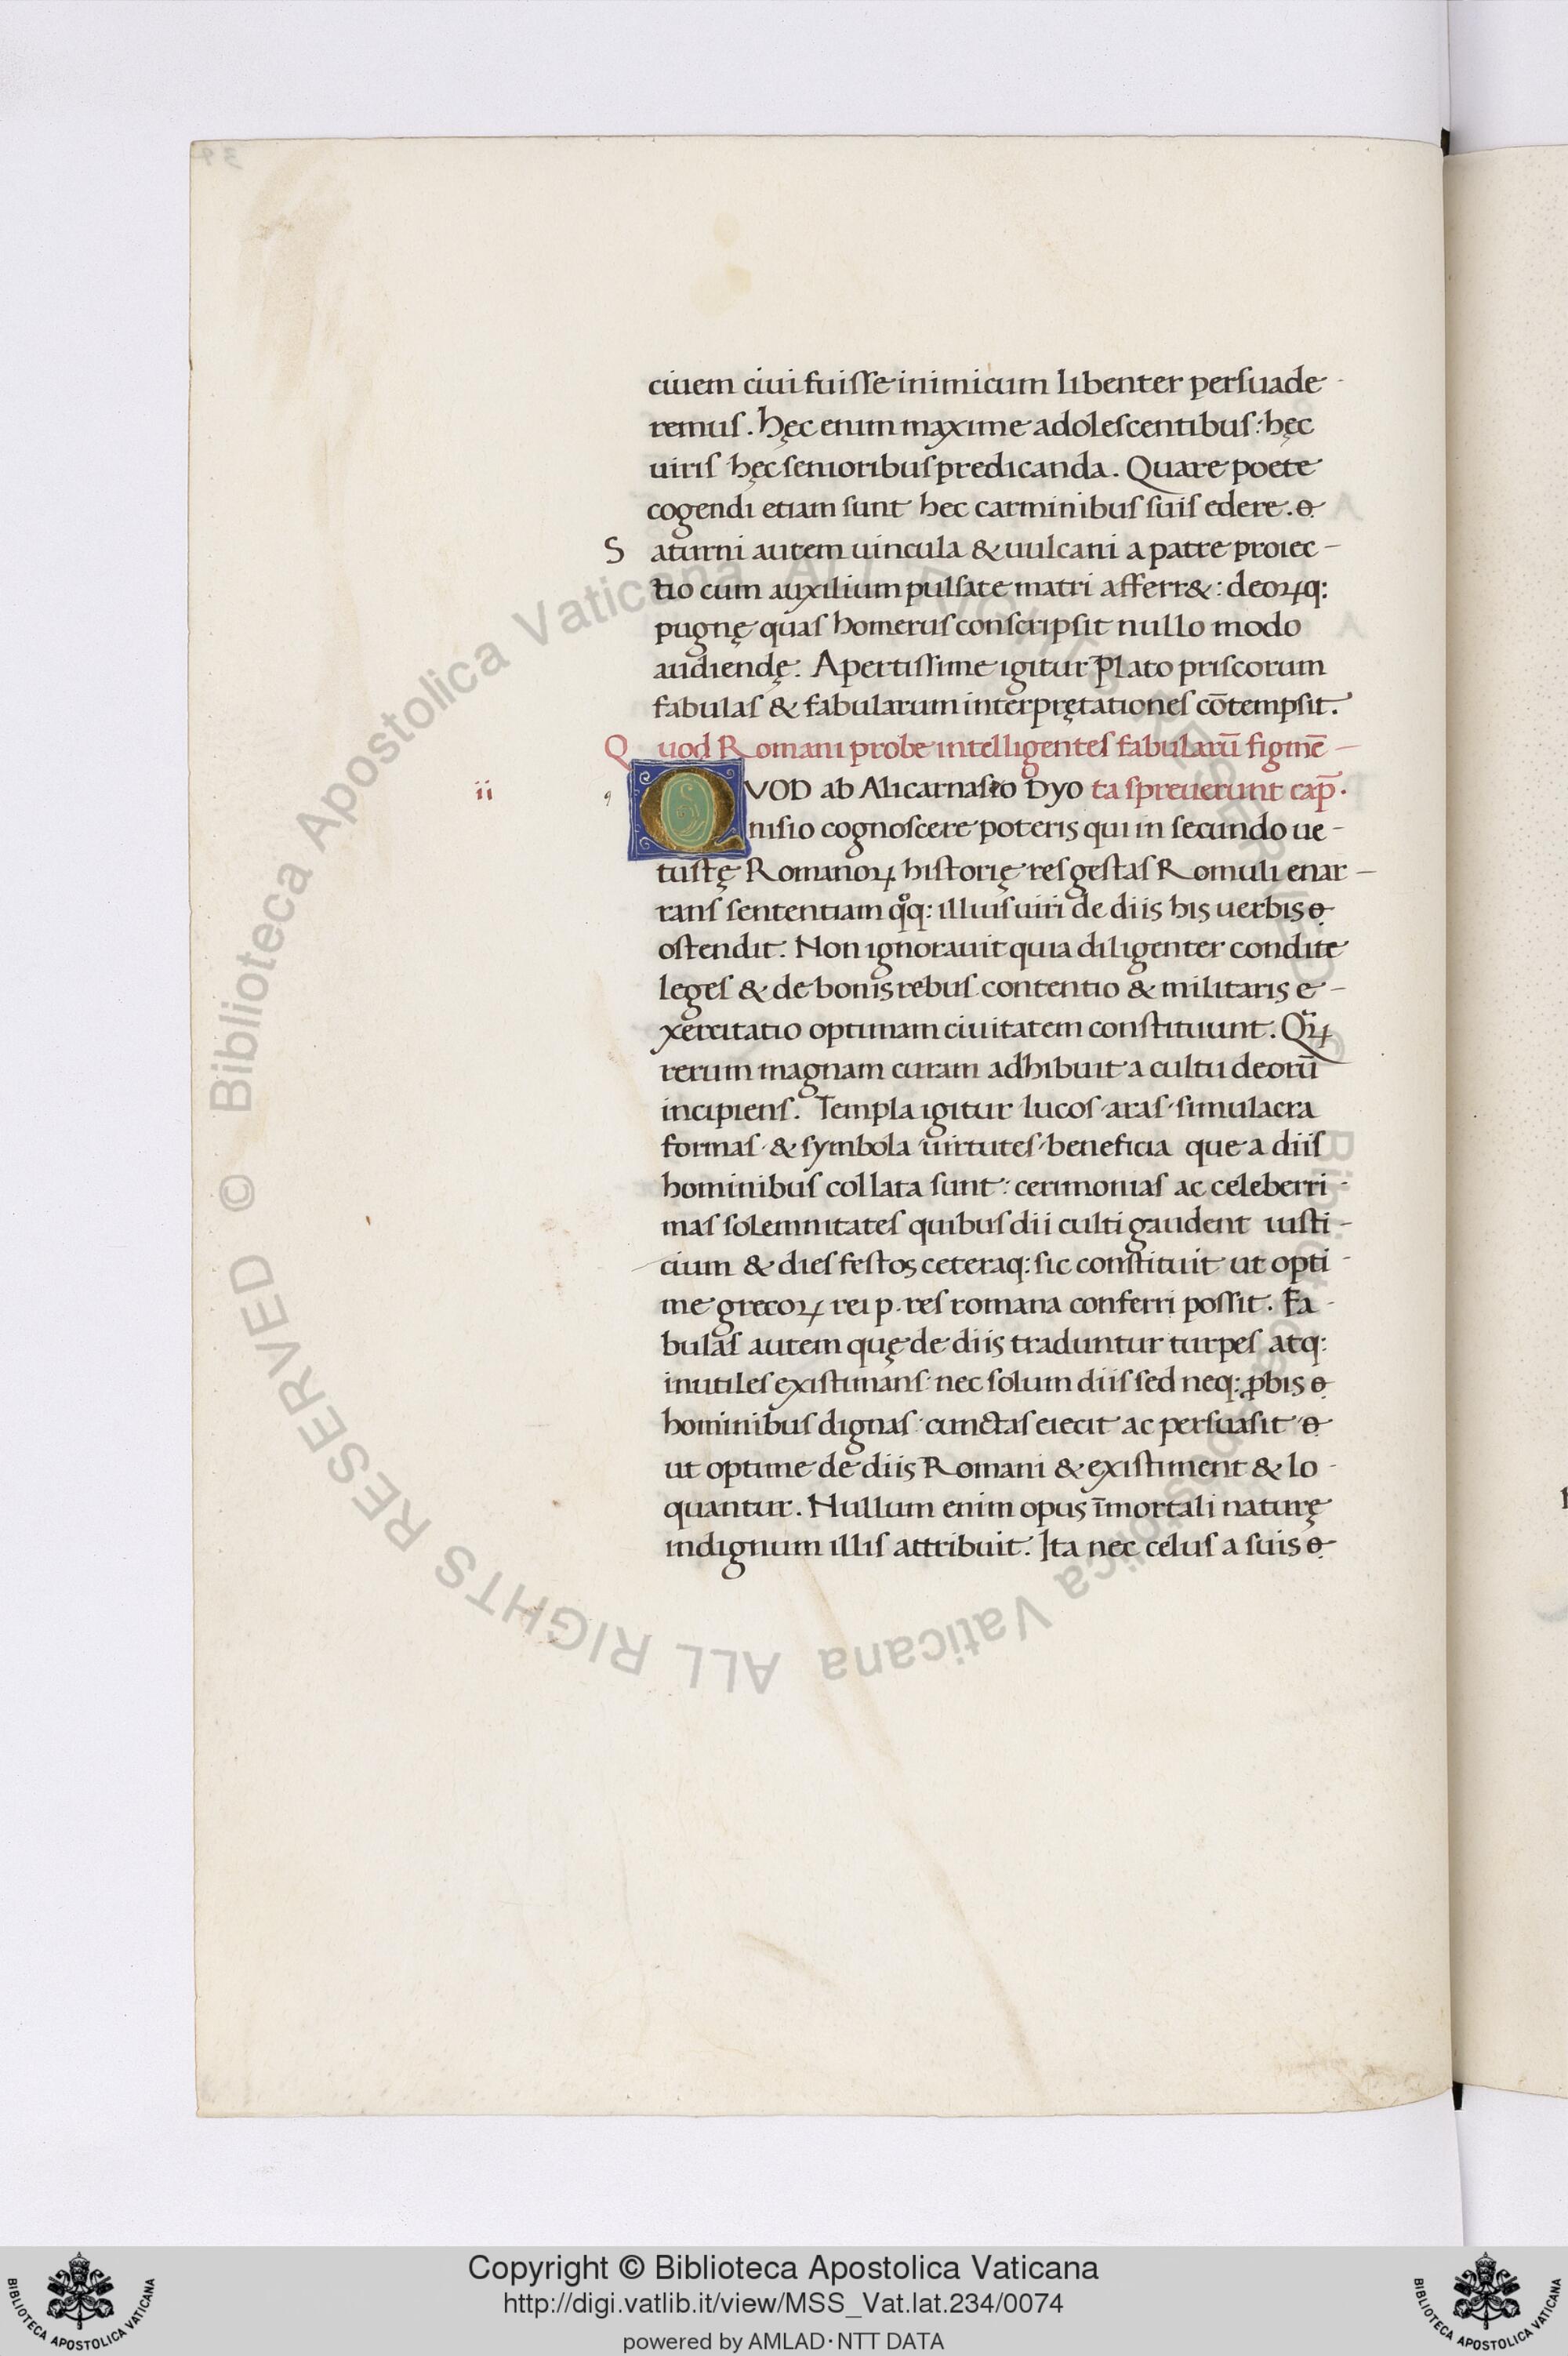 ciuem ciui fuisse inimicum libenter persuade-
remus. hęc enim maxime adolescentibus: hęc
uiris hęc senioribus predicanda. Quare poete
cogendi etiam sunt hec carminibus suis edere.
Saturni autem uincula & uulcani a patre proiec-
tio cum auxilium pulsate matri afferr&: deoꝝq:
pugnę quas homerus conscripsit nullo modo
audiendę. Apertissime igitur Plato priscorum
fabulas & fabularum interpretationes cōtempsit.
Quod Romani probe intelligentes fabularū figmē-
ta spreuerunt cap̄.
ii
QVOD ab Alicarnaseo Dyo
nisio cognoscere poteris qui in secundo ue-
tustę Romanoꝝ historię res gestas Romuli enar-
rans sententiam qͦq: illius uiri de diis his uerbis
ostendit. Non ignorauit quia diligenter condite
leges & de bonis rebus contentio & militaris e-
xercitatio optimam ciuitatem constituunt. Qꝝ
rerum magnam curam adhibuit a cultu deorū
incipiens. Templa igitur lucos aras simulacra
formas & symbola uirtutes beneficia que a diis
hominibus collata sunt: cerimonias ac celeberri-
mas solemnitates quibus dii culti gaudent iusti-
cium & dies festos ceteraq: sic constituit ut opti-
me grecoꝝ rei p. res romana conferri possit. Fa-
bulas autem quę de diis traduntur turpes atq:
inutiles existimans nec solum diis sed neq: ꝓbis
hominibus dignas cunctas eiecit ac persuasit
ut optime de diis Romani & existiment & lo-
quantur. Nullum enim opus īmortali naturę
indignum illis attribuit. Ita nec celus a suis
© Biblioteca Apostolica Vaticana ALL RIGHTS RESERVED
© Biblioteca Apostolica Vaticana ALL RIGHTS RESERVED
Copyright © Biblioteca Apostolica Vaticana
http://digi.vatlib.it/view/MSS_Vat.lat.234/0074
powered by AMLAD·NTT DATA
BIBLIOTECA APOSTOLICA VATICANA
BIBLIOTECA APOSTOLICA VATICANA